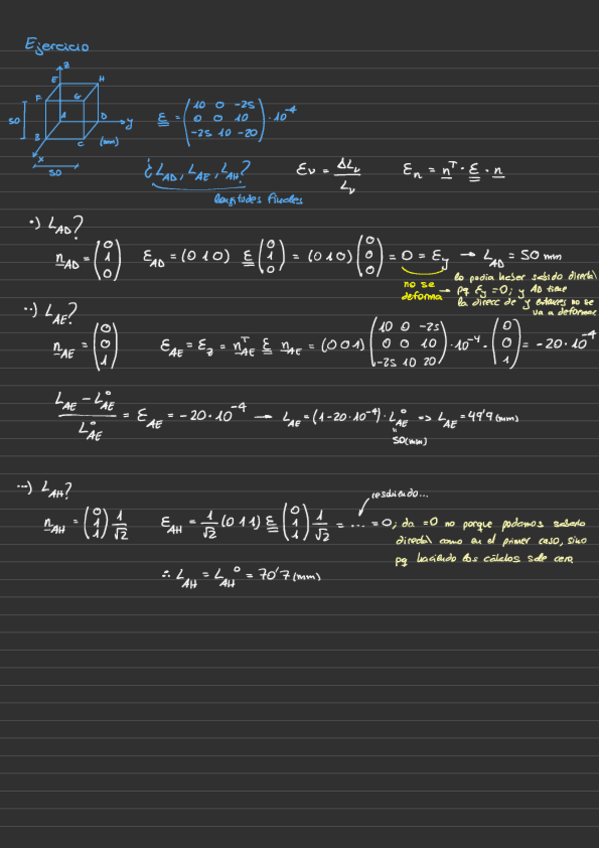 Ejercicio
z
E H
F G
50 A D y
B C (mm)
x
50
ε = (10 0 -25
0 0 10
-25 10 -20) · 10⁻⁴
¿L_AD, L_AE, L_AH?
longitudes finales
ε_ν = ΔL_ν / L_ν
ε_n = nᵀ · ε · n
·) L_AD?
n_AD = (0 1 0) ε_AD = (0 1 0) ε (0 1 0) = (0 1 0) (0 0 0) = 0 = ε_y → L_AD = 50 mm
no se deforma → lo podía haber sabido direct.
pq ε_y = 0; y AD tiene
la direcc de y entonces no se
va a deformar
··) L_AE?
n_AE = (0 0 1) ε_AE = ε_z = nᵀ_AE ε n_AE = (0 0 1) (10 0 -25
0 0 10
-25 10 20) · 10⁻⁴ · (0 0 1) = -20 · 10⁻⁴
(L_AE - L°_AE) / L°_AE = ε_AE = -20 · 10⁻⁴ → L_AE = (1 - 20 · 10⁻⁴) · L°_AE => L_AE = 49'9 (mm)
" 50 (mm)
···) L_AH?
resolviendo...
n_AH = (0 1 1) 1/√2 ε_AH = 1/√2 (0 1 1) ε (0 1 1) 1/√2 = ... = 0; da = 0 no porque podamos saberlo
direct. como en el primer caso, sino
pq haciendo los cálculos sale cero
∴ L_AH = L_AH° = 70'7 (mm)